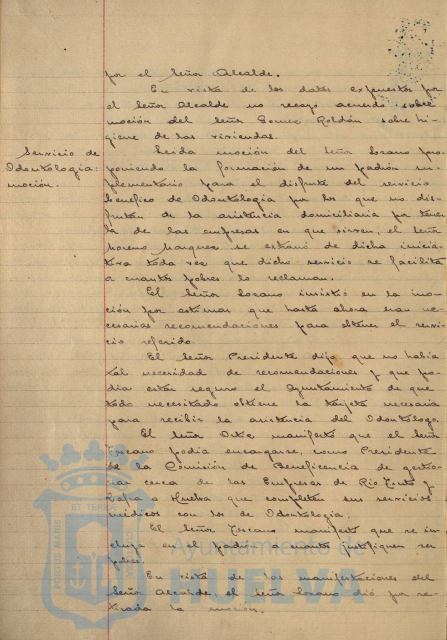 por el Señor Alcalde.
En vista de los datos expuestos por
el Señor Alcalde no recayó acuerdo sobre
moción del Señor Gomez Roldán sobre hi-
giene de las viviendas.
Servicio de
Odontologia:
moción.
Leida moción del Señor Lozano pro-
poniendo la formación de un padrón su-
plementario para el disfrute del servicio
benefico de Odontologia por los que no dis-
fruten de la asistencia domiciliaria por tener-
la de las empresas en que sirven, el Señor
Moreno Marquez se extrañó de dicha inicia-
tiva toda vez que dicho servicio se facilita
a cuantos pobres lo reclaman.
El Señor Lozano insistió en la mo-
ción por estimar que hasta ahora eran ne-
cesarias recomendaciones para obtener el servi-
cio referido.
El Señor Presidente dijo que no habia
tal necesidad de recomendaciones y que po-
dia estar seguro el Ayuntamiento de que
todo necesitado obtiene la tarjeta necesaria
para recibir la asistencia del Odontólogo.
El Señor Ortiz manifestó que el Señor
Toscano podia encargarse, como Presidente
de la Comisión de Beneficencia de gestio-
nar cerca de las Empresas de Rio Tinto y
Zafra a Huelva que completen sus servicios
médicos con los de Odontologia.
El Señor Toscano manifestó que se in-
cluya en el padrón a cuantos justifiquen ser
pobres.
En vista de las manifestaciones del
Señor Alcalde, el Señor Lozano dió por re-
tirada la moción.
PORTUS MARIS
ET TERRE
Ayuntamiento de
HUELVA